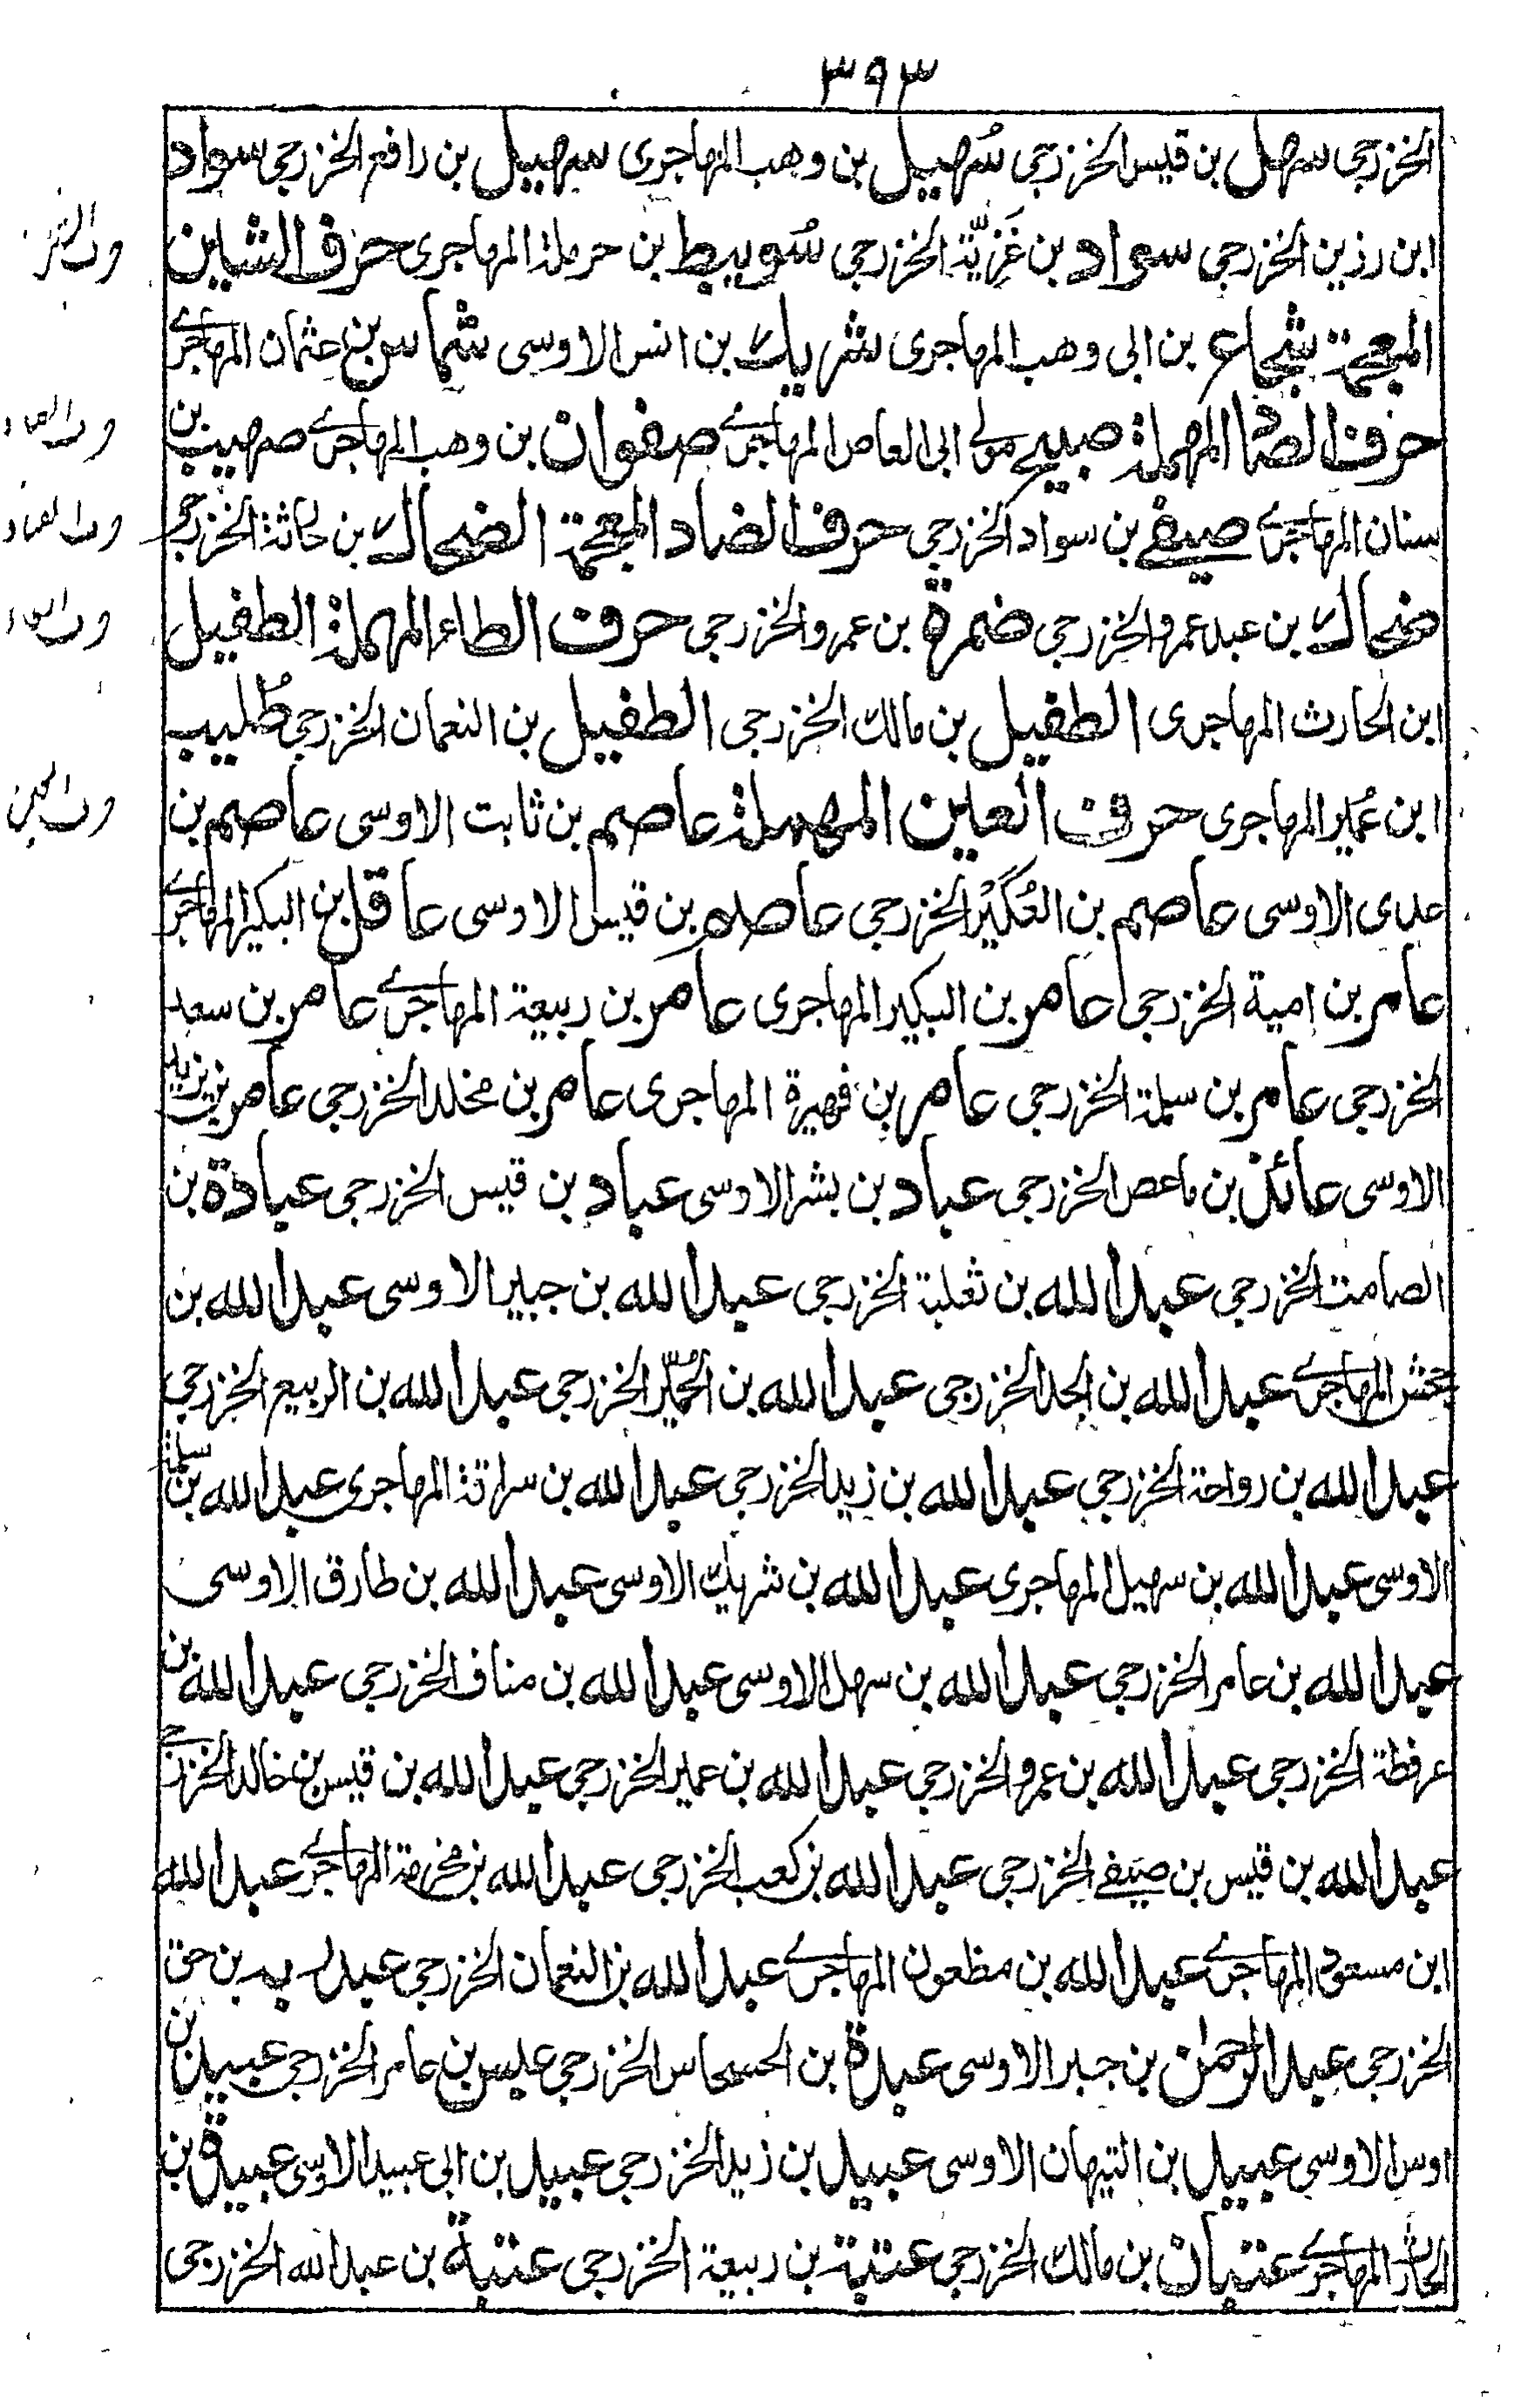 ٣٩٣
الخزرجی سهل بن قیس الخزرجی سُهیل بن وهب المهاجری سهیل بن رافع الخزرجی سواد
ابن رزین الخزرجی سواد بن غَزِیَّة الخزرجی سُویبط بن حرملة المهاجری حرف الشین
المعجمة شجاع بن ابی وهب المهاجری شریك بن انس الاوسی شماس بن عثمان المهاجری
حرف الصاد المهملة صبیح مولی ابی العاص المهاجری صفوان بن وهب المهاجری صهیب بن
سنان المهاجری صیفی بن سواد الخزرجی حرف الضاد المعجمة الضحاك بن حارثة الخزرجی
ضحاك بن عبد عمرو الخزرجی ضمرة بن عمرو الخزرجی حرف الطاء المهملة الطفیل
ابن الحارث المهاجری الطفیل بن مالك الخزرجی الطفیل بن النعمان الخزرجی طُلیب
ابن عُمیر المهاجری حرف العین المهملة عاصم بن ثابت الاوسی عاصم بن
عدی الاوسی عاصم بن العُكَیْر الخزرجی عاصم بن قیس الاوسی عاقل بن البكیر المهاجری
عامر بن امیة الخزرجی عامر بن البكیر المهاجری عامر بن ربیعة المهاجری عامر بن سعد
الخزرجی عامر بن سلمة الخزرجی عامر بن فهیرة المهاجری عامر بن مخلد الخزرجی عامر بن یزید
الاوسی عائذ بن ماعص الخزرجی عباد بن بشر الاوسی عباد بن قیس الخزرجی عبادة بن
الصامت الخزرجی عبد الله بن ثعلبة الخزرجی عبد الله بن جبیر الاوسی عبد الله بن
جحش المهاجری عبد الله بن الجد الخزرجی عبد الله بن الحُمَیّر الخزرجی عبد الله بن الربیع الخزرجی
عبد الله بن رواحة الخزرجی عبد الله بن زید الخزرجی عبد الله بن سراقة المهاجری عبد الله بن سلمة
الاوسی عبد الله بن سهیل المهاجری عبد الله بن شریك الاوسی عبد الله بن طارق الاوسی
عبد الله بن عامر الخزرجی عبد الله بن سهل الاوسی عبد الله بن مناف الخزرجی عبد الله بن
عرفطة الخزرجی عبد الله بن عمرو الخزرجی عبد الله بن عمیر الخزرجی عبد الله بن قیس بن خالد الخزرجی
عبد الله بن قیس بن صیفی الخزرجی عبد الله بن كعب الخزرجی عبد الله بن مخرمة المهاجری عبد الله
ابن مسعود المهاجری عبد الله بن مظعون المهاجری عبد الله بن النعمان الخزرجی عبد ربه بن حق
الخزرجی عبد الرحمن بن جبر الاوسی عبدة بن الحسحاس الخزرجی عبس بن عامر الخزرجی عبید بن
اوس الاوسی عبید بن التیهان الاوسی عبید بن زید الخزرجی عبید بن ابی عبید الاوسی عبیدة بن
الحارث المهاجری عتبان بن مالك الخزرجی عتبة بن ربیعة الخزرجی عتبة بن عبد الله الخزرجی